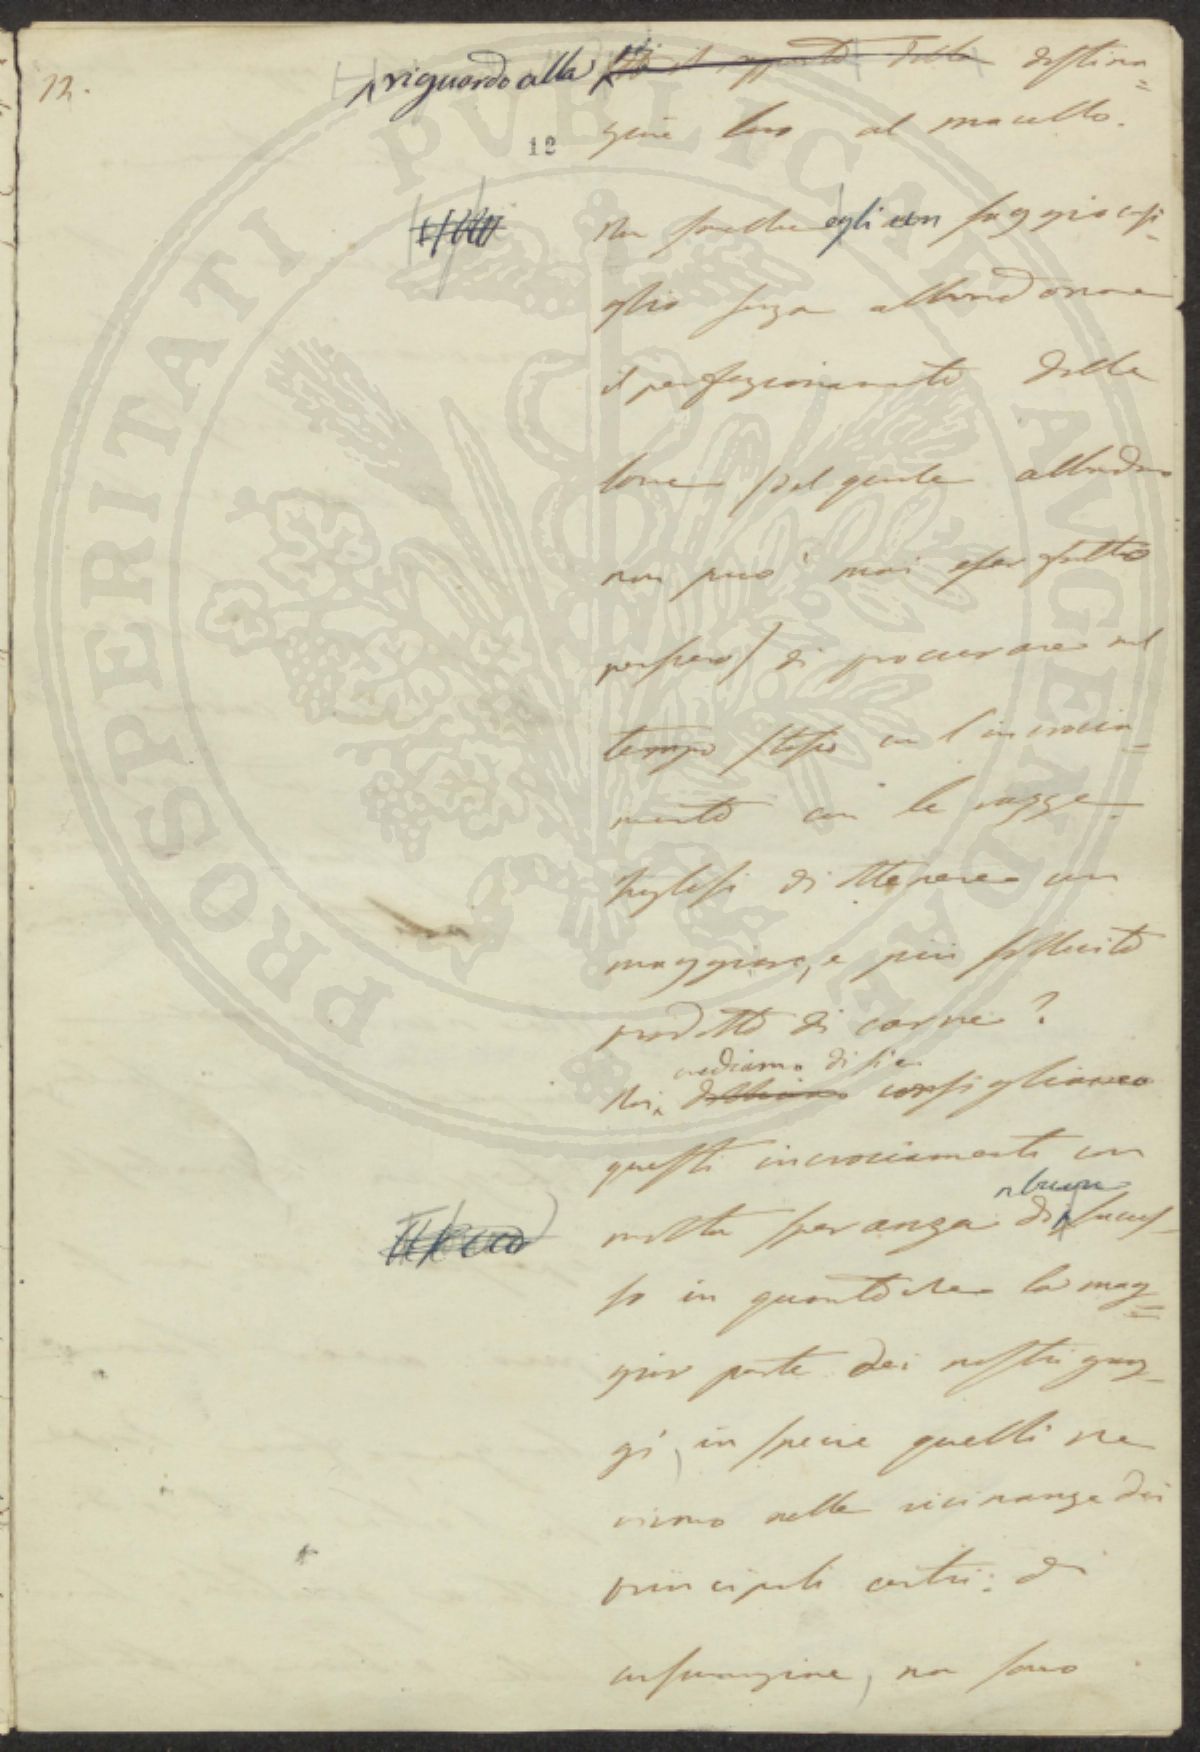 12.
riguardo alla sotto il rapporto della destina=
zione loro al macello.
12
Non sarebbe egli un saggio consi-
glio senza abbandonare
il perfezionamento della
lana (del quale abbiamo
non può mai esser fatto
) di procurare nel
tempo stesso con l'incrocia-
mento con le razze
Inglesi di ottenere un
maggiore, e più sollecito
prodotto di carne?
crediamo di sì e
Noi dobbiamo consigliare
questi incrociamenti con
buon
molta speranza di succes-
so in quanto che la mag=
gior parte dei nostri greg-
gi, in specie quelli che
vivono nelle vicinanze dei
principali centri di
consumazione, non sono
PROSPERITATI PUBLICAE AUGENDAE